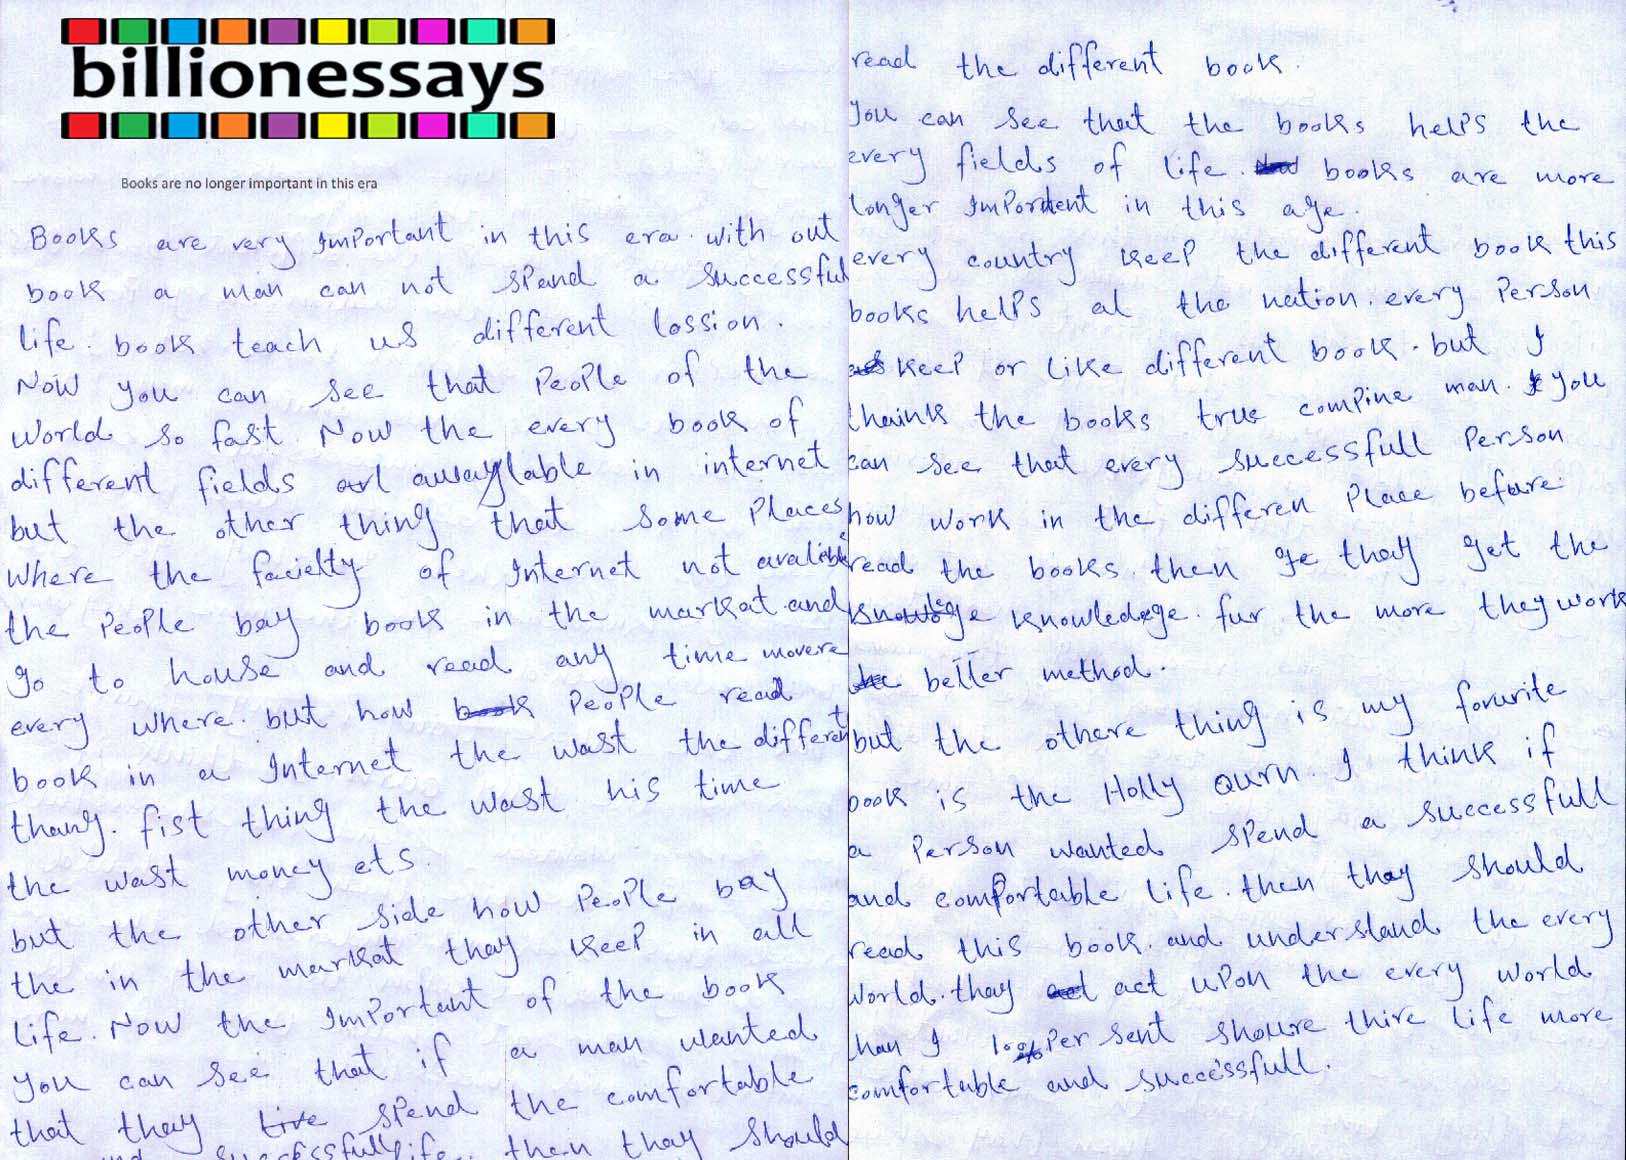 billionessays
Books are no longer important in this era
Books are very Important in this era. with out
book a man can not spend a successful
life. book teach us different lossion.
Now you can see that People of the
world so fast. Now the every book of
different fields awaylable in internet
but the other thing that some Places
where the facielty of Internet not avalible
the People bay book in the markat. and
go to house and read any time movere
every where. but how book People read
book in a Internet the wast the different
thang. fist thing the wast his time
the wast money ets.
but the other side how People bay
the in the markat thay keep in all
life. Now the ImPortant of the book
you can see that if a man wanted
that thay live spend the comfortable
and successfull life. then thay should
read the different book.
you can see that the books helps the
every fields of life. books are more
longer ImPortent in this age.
every country keep the different book this
books helps al the nation. every Person
keep or like different book. but I
thaink the books true compine man. you
can see that every successfull Person
how work in the differen Place before
read the books. then thay get the
knowledge. fur the more they work
better method.
but the othere thing is my forurite
book is the Holly Qurn. I think if
a Person wanted spend a successfull
and comfortable life. then thay should
read this book. and understand the every
world. thay act upon the every world
than I 100% Per sent shoure thire life more
comfortable and successfull.